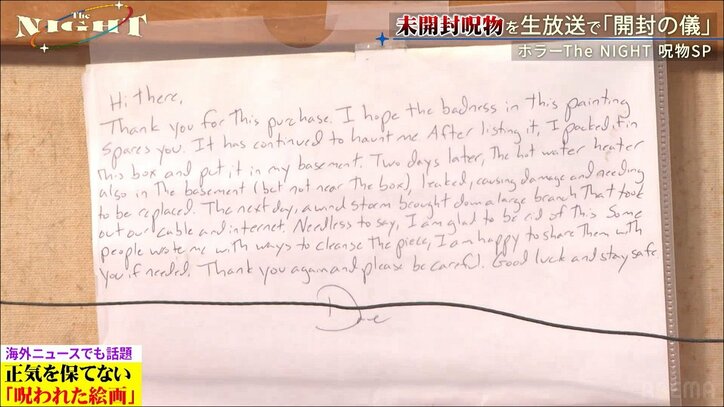 The NIGHT
未開封呪物を生放送で「開封の儀」
ホラーThe NIGHT 呪物SP
Hi There,
Thank you for this purchase. I hope the badness in this painting
spares you. It has continued to haunt me. After listing it, I packed it in
this box and put it in my basement. Two days later, the hot water heater
also in the basement (but not near the box), leaked, causing damage and needing
to be replaced. The next day, a wind storm brought down a large branch that took
out our cable and internet. Needless to say, I am glad to be rid of this. Some
people wrote me with ways to cleanse the piece, I am happy to share them with
you if needed. Thank you again and please be careful. Good luck and stay safe.
Dave
海外ニュースでも話題
正気を保てない
「呪われた絵画」
ABEMA